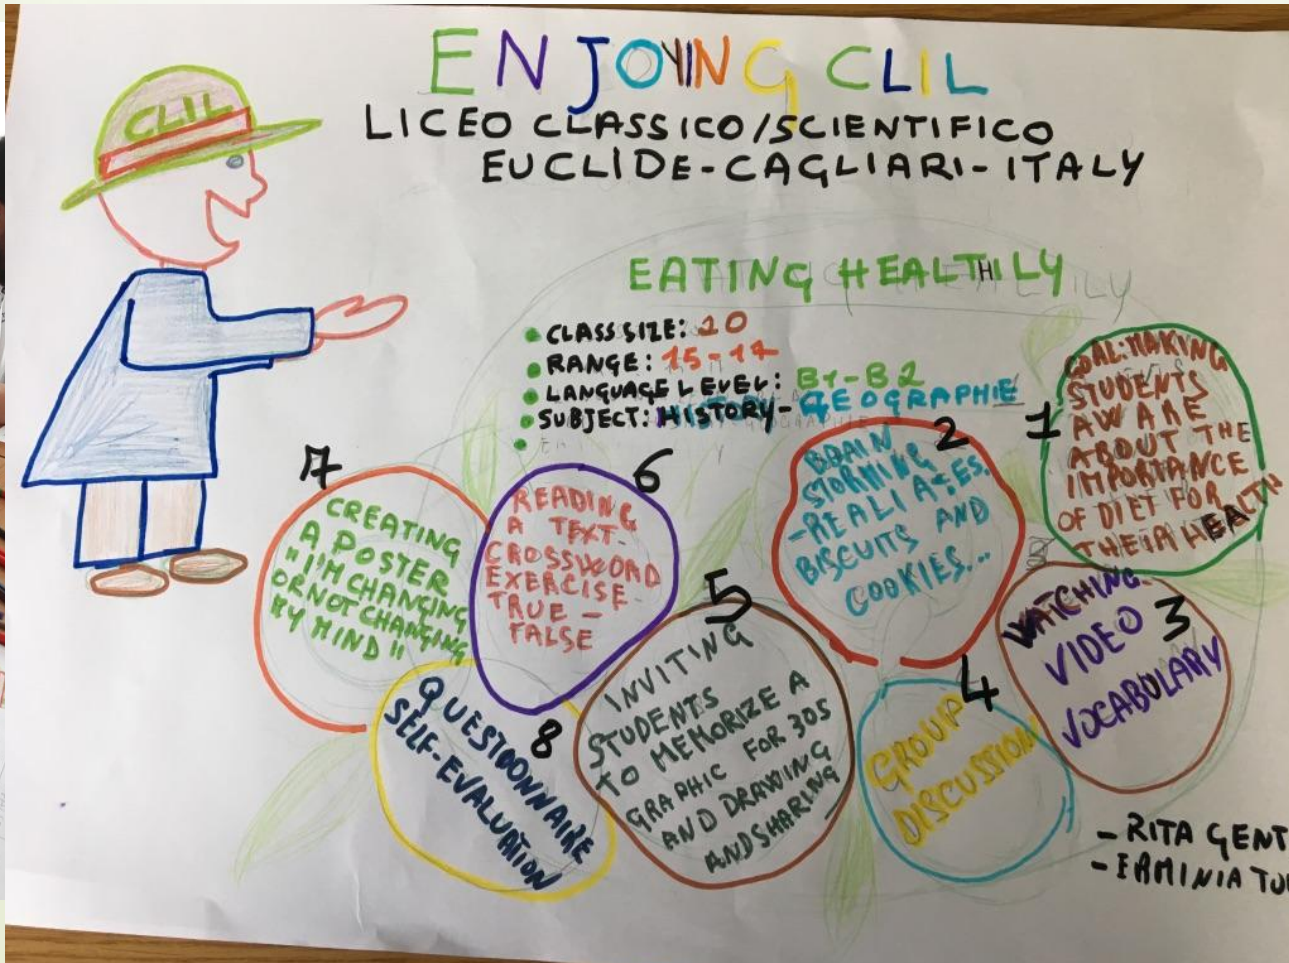 ENJOYING CLIL
LICEO CLASSICO/SCIENTIFICO
EUCLIDE-CAGLIARI-ITALY
CLIL
EATING HEALTHILY
CLASS SIZE: 20
RANGE: 15-17
LANGUAGE LEVEL: B1-B2
SUBJECT: HISTORY-GEOGRAPHIE
1
GOAL: MAKING
STUDENTS
AWARE
ABOUT THE
IMPORTANCE
OF DIET FOR
THEIR HEALTH
2
BRAIN
STORMING
-REALIA: ES.
BISCUITS AND
COOKIES...
3
WATCHING
VIDEO
VOCABULARY
4
GROUP
DISCUSSION
5
INVITING
STUDENTS
TO MEMORIZE A
GRAPHIC FOR 30S
AND DRAWING
AND SHARING
6
READING
A TEXT-
CROSSWORD
EXERCISE-
TRUE-
FALSE
7
CREATING
A POSTER
"I'M CHANGING
OR NOT CHANGING
MY MIND"
8
QUESTIONNAIRE
SELF-EVALUATION
- RITA GENT